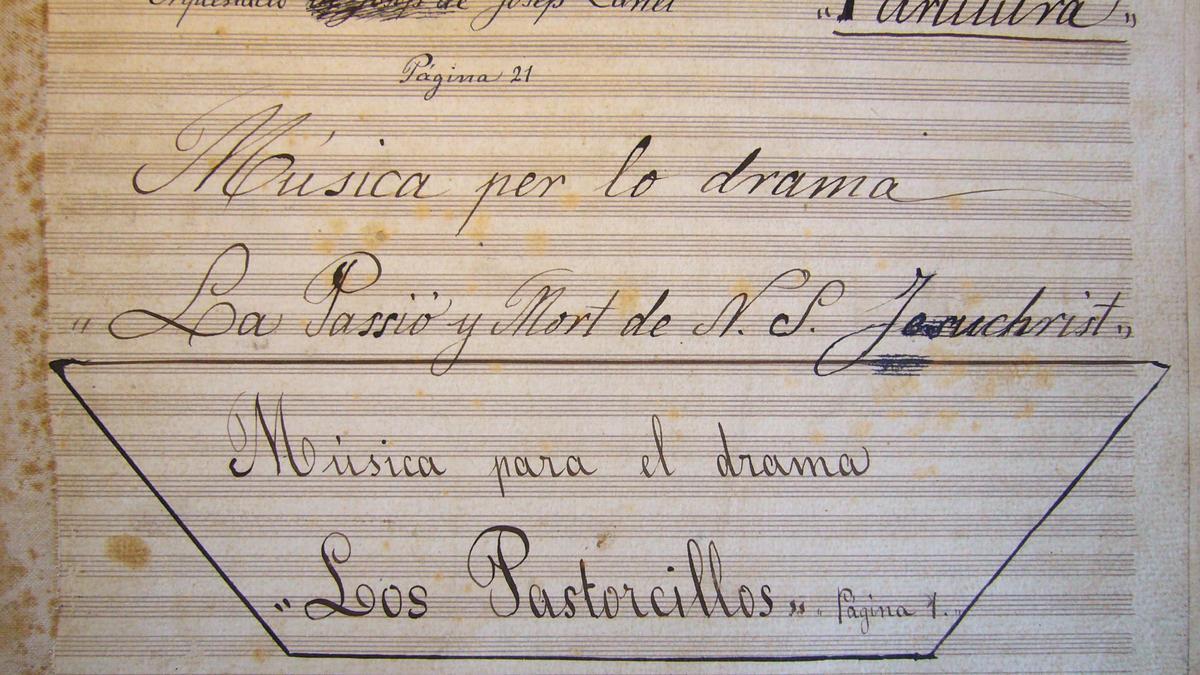 Orquestació de Josep
„Partitura”
Página 21
Música per lo drama
„La Passió y Mort de N. S. Jesuchrist„
Música para el drama
„Los Pastorcillos„ „Página 1.„